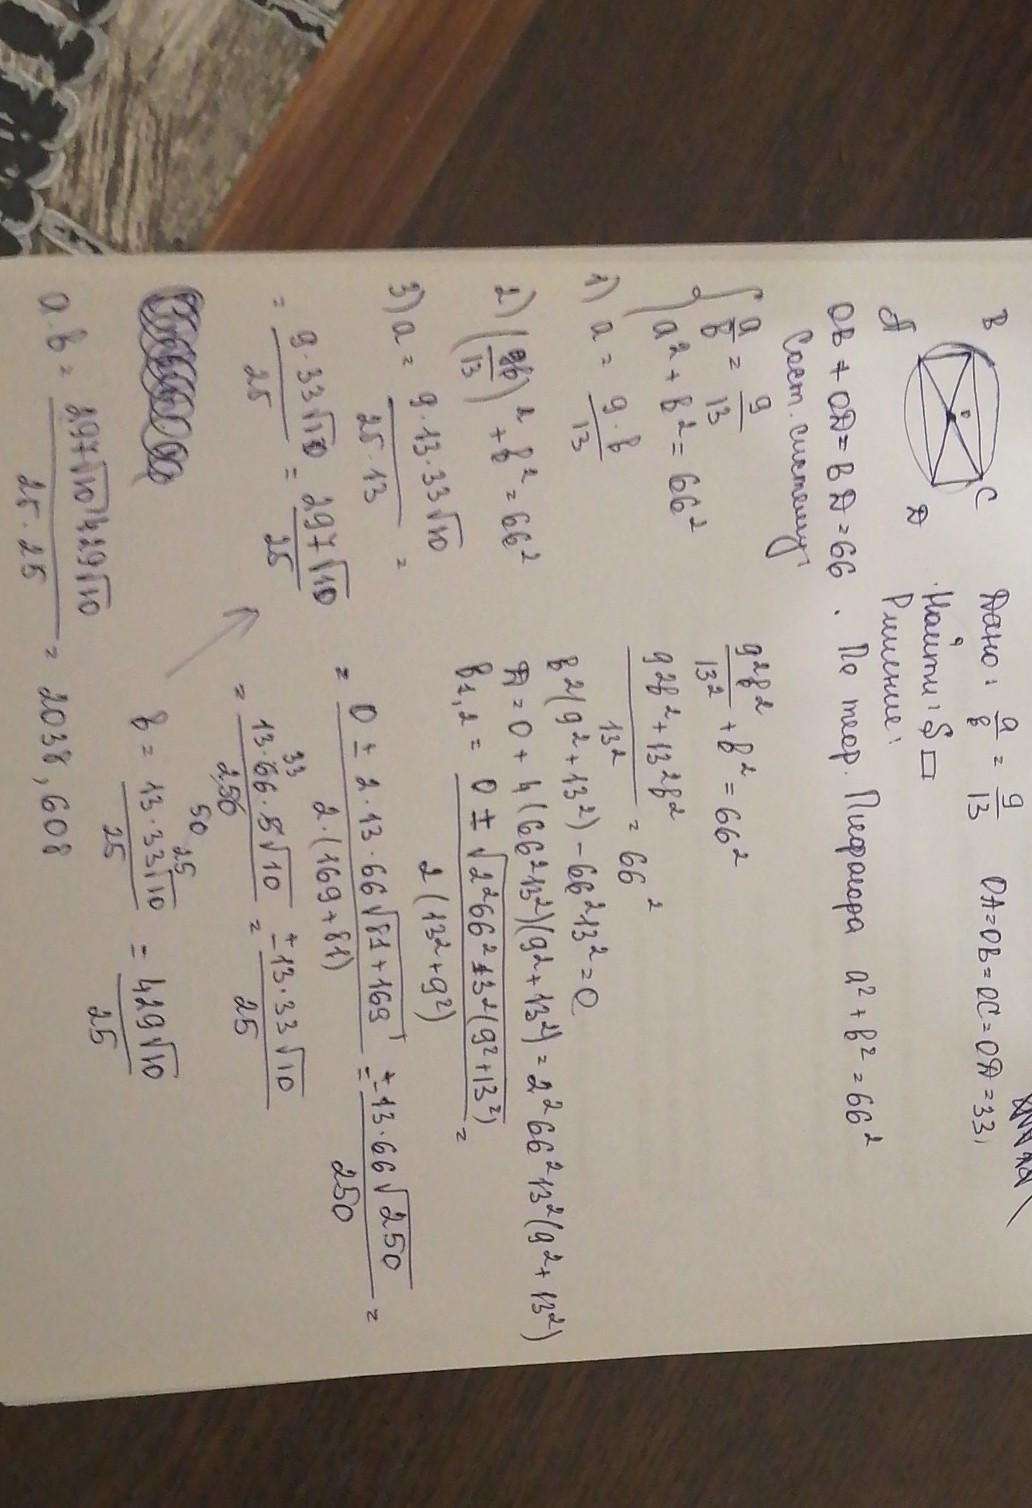 B
C
A
D
Дано: a/b = 9/13 OA=OB=OC=OD=33,
Найти: S □
Решение:
OB + OD = BD = 66. По теор. Пифагора a² + b² = 66²
Сост. систему:
{ a/b = 9/13
a² + b² = 66²
1) a = 9·b/13
2) (9b/13)² + b² = 66²
9²b²/13² + b² = 66²
9²b² + 13²b²/13² = 66²
b²(9² + 13²) - 66²13² = 0
D = 0 + 4(66²13²)(9² + 13²) = 2²66²13²(9² + 13²)
b1,2 = 0 ± √2²66²13²(9² + 13²)/2(13² + 9²) =
= 0 ± 2·13·66√81+169/2·(169+81) = ±13·66√250/250 =
= 13·66·5√10/250 = ±13·33√10/25
33
50 25
3) a = 9·13·33√10/25·13 =
= 9·33√10/25 = 297√10/25
b = 13·33√10/25 = 429√10/25
a·b = 297√10·429√10/25·25 = 2038,608